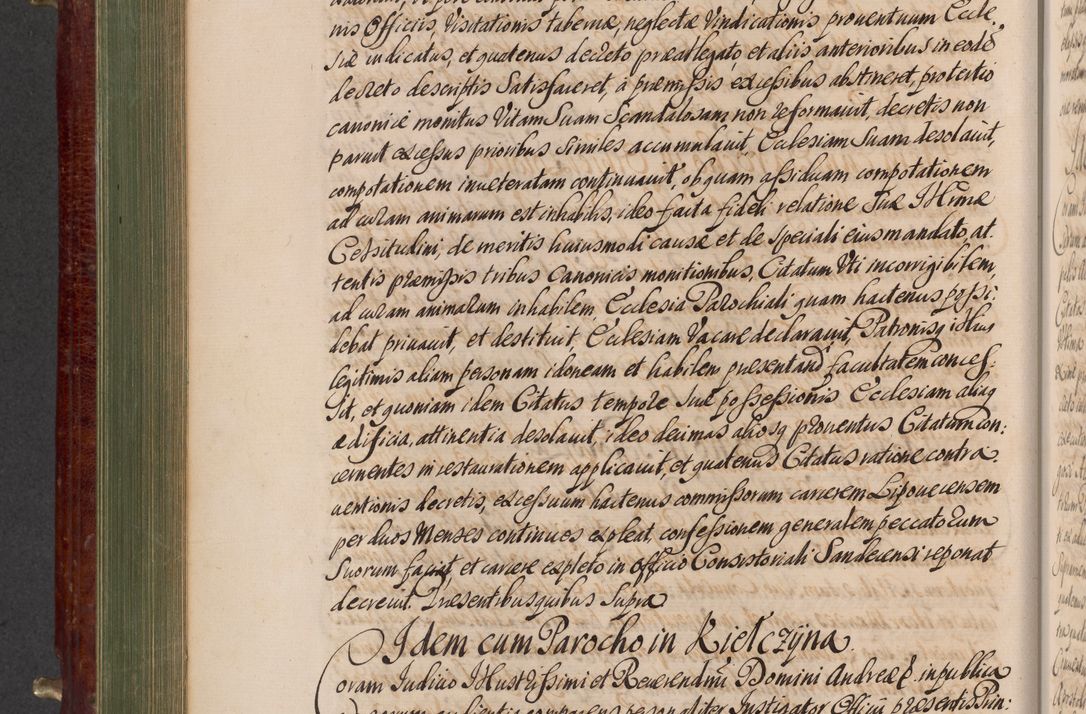 nis Officiis, Visitationis tabernæ, neglectæ Vindicationis proventuum Eccle,
siæ indicatus, et quatenus decreto præallegato, et aliis anterioribus in eodē
decreto descriptis Satisfaceret, à præmissis excessibus abstineret, protertio
canonicè monitus Vitam Suam Scandalosam non reformavit, decretis non
paruit excessus prioribus similes accumulavit, Ecclesiam Suam desolavit,
compotationem inveteratam continuavit, ob quam assiduam compotationem
ad curam animarum est inhabilis, ideo facta fideli relatione Suæ Illlmæ
Celsitudini, de meritis huiusmodi causæ et de speciali eius mandato, at
tentis præmissis tribus Canonicis monitionibus, Citatum Uti incorrigibilem,
ad curam animarum inhabilem, Ecclesia Parochiali quam hactenus possi:
debat privavit, et destituit, Ecclesiam Vacare declaravit, Patronisq illius
legitimis aliam personam idoneam et habilem præsentandi facultatem conces,
sit, et quoniam idem Citatus tempore suæ possessionis Ecclesiam aliaq
ædificia, attinentia desolavit, ideo decimas aliosq proventus Citatum con:
cernentes in restaurationem applicavit, et quatenus Citatus ratione contra
ventionis decretis, excessuum hactenus commissorum carcerem Lipoviecensem
per duos Menses continuos expleat, confessionem generalem peccatorum
Suorum faciat, et carcere expleto in Officio Consistoriali Sandecensi reponat
decrevit. Præsentibus quibus Supra
Idem cum Parocho in Kielczyna
Coram Iudicio Illustrissimi et Reverendmi Domini Andreæ E. in publica
audientia comparens personaliter Instigator Officii præsentis Prin: